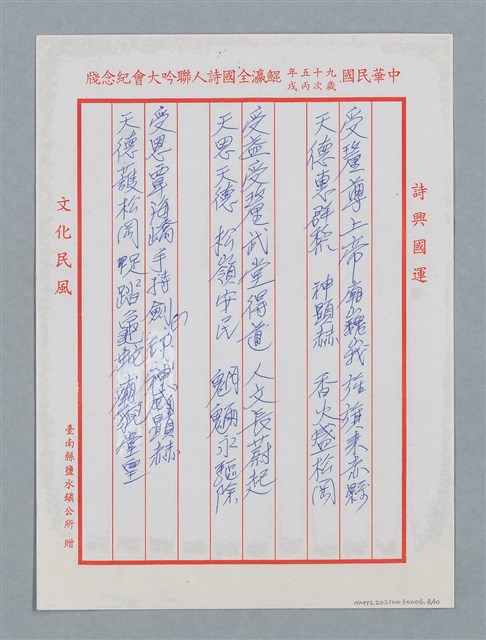 中華民國九十五年歲次丙戌鯤瀛全國詩人聯吟大會紀念牋
詩興國運
受釐尊上帝廟巍峩旌旗来赤縣
天德惠群黎 神顯赫 香火盛松岡
受益受釐武堂得道 人文長蔚起
天恩天德 松嶺安民 魍魎永驅除
受恩覃海嶠手持劍印神威顯赫
天德護松岡 踏龜蛇廟貌堂皇
文化民風
臺南縣鹽水鎮公所 贈
NMTL20210030006.8/10